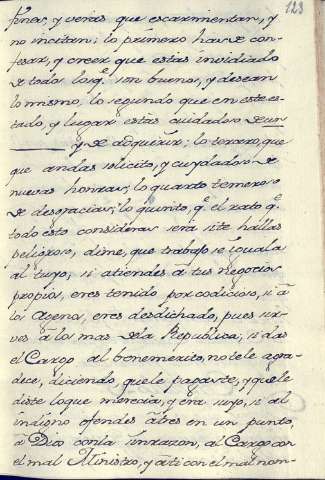 123
penas, y veras que escarmientan, y
no incitan; lo primero has de con-
fesar, y creer que estas invidiado
de todos los q.e son buenos, y desean
lo mismo, lo segundo que en este es-
tado, y lugar estas cuidadoso de un
——— y de adquerir; lo tercero, que
que andas solicito, y cuydadoso de
nuevas honras; lo quarto temeroso
de desgracias; lo quinto, q.e el rato q.e
todo esto consideras sera si te hallas
peligroso, dime, que trabajo se iguala
al tuyo, si atiendes a tus negocios
propios, eres tenido por codicioso, si â
los agenos, eres desdichado, pues sir-
ves â los mas de la Republica; si das
el Cargo al benemerito, no te le agra-
dece, diciendo, que le pagaste, y que le
diste lo que merecia, y era suyo, si al
indigno ofendes â tres en un punto,
â Dios con la sinrazon, al Cargo con
el mal Ministro, y â ti con el mal nom-